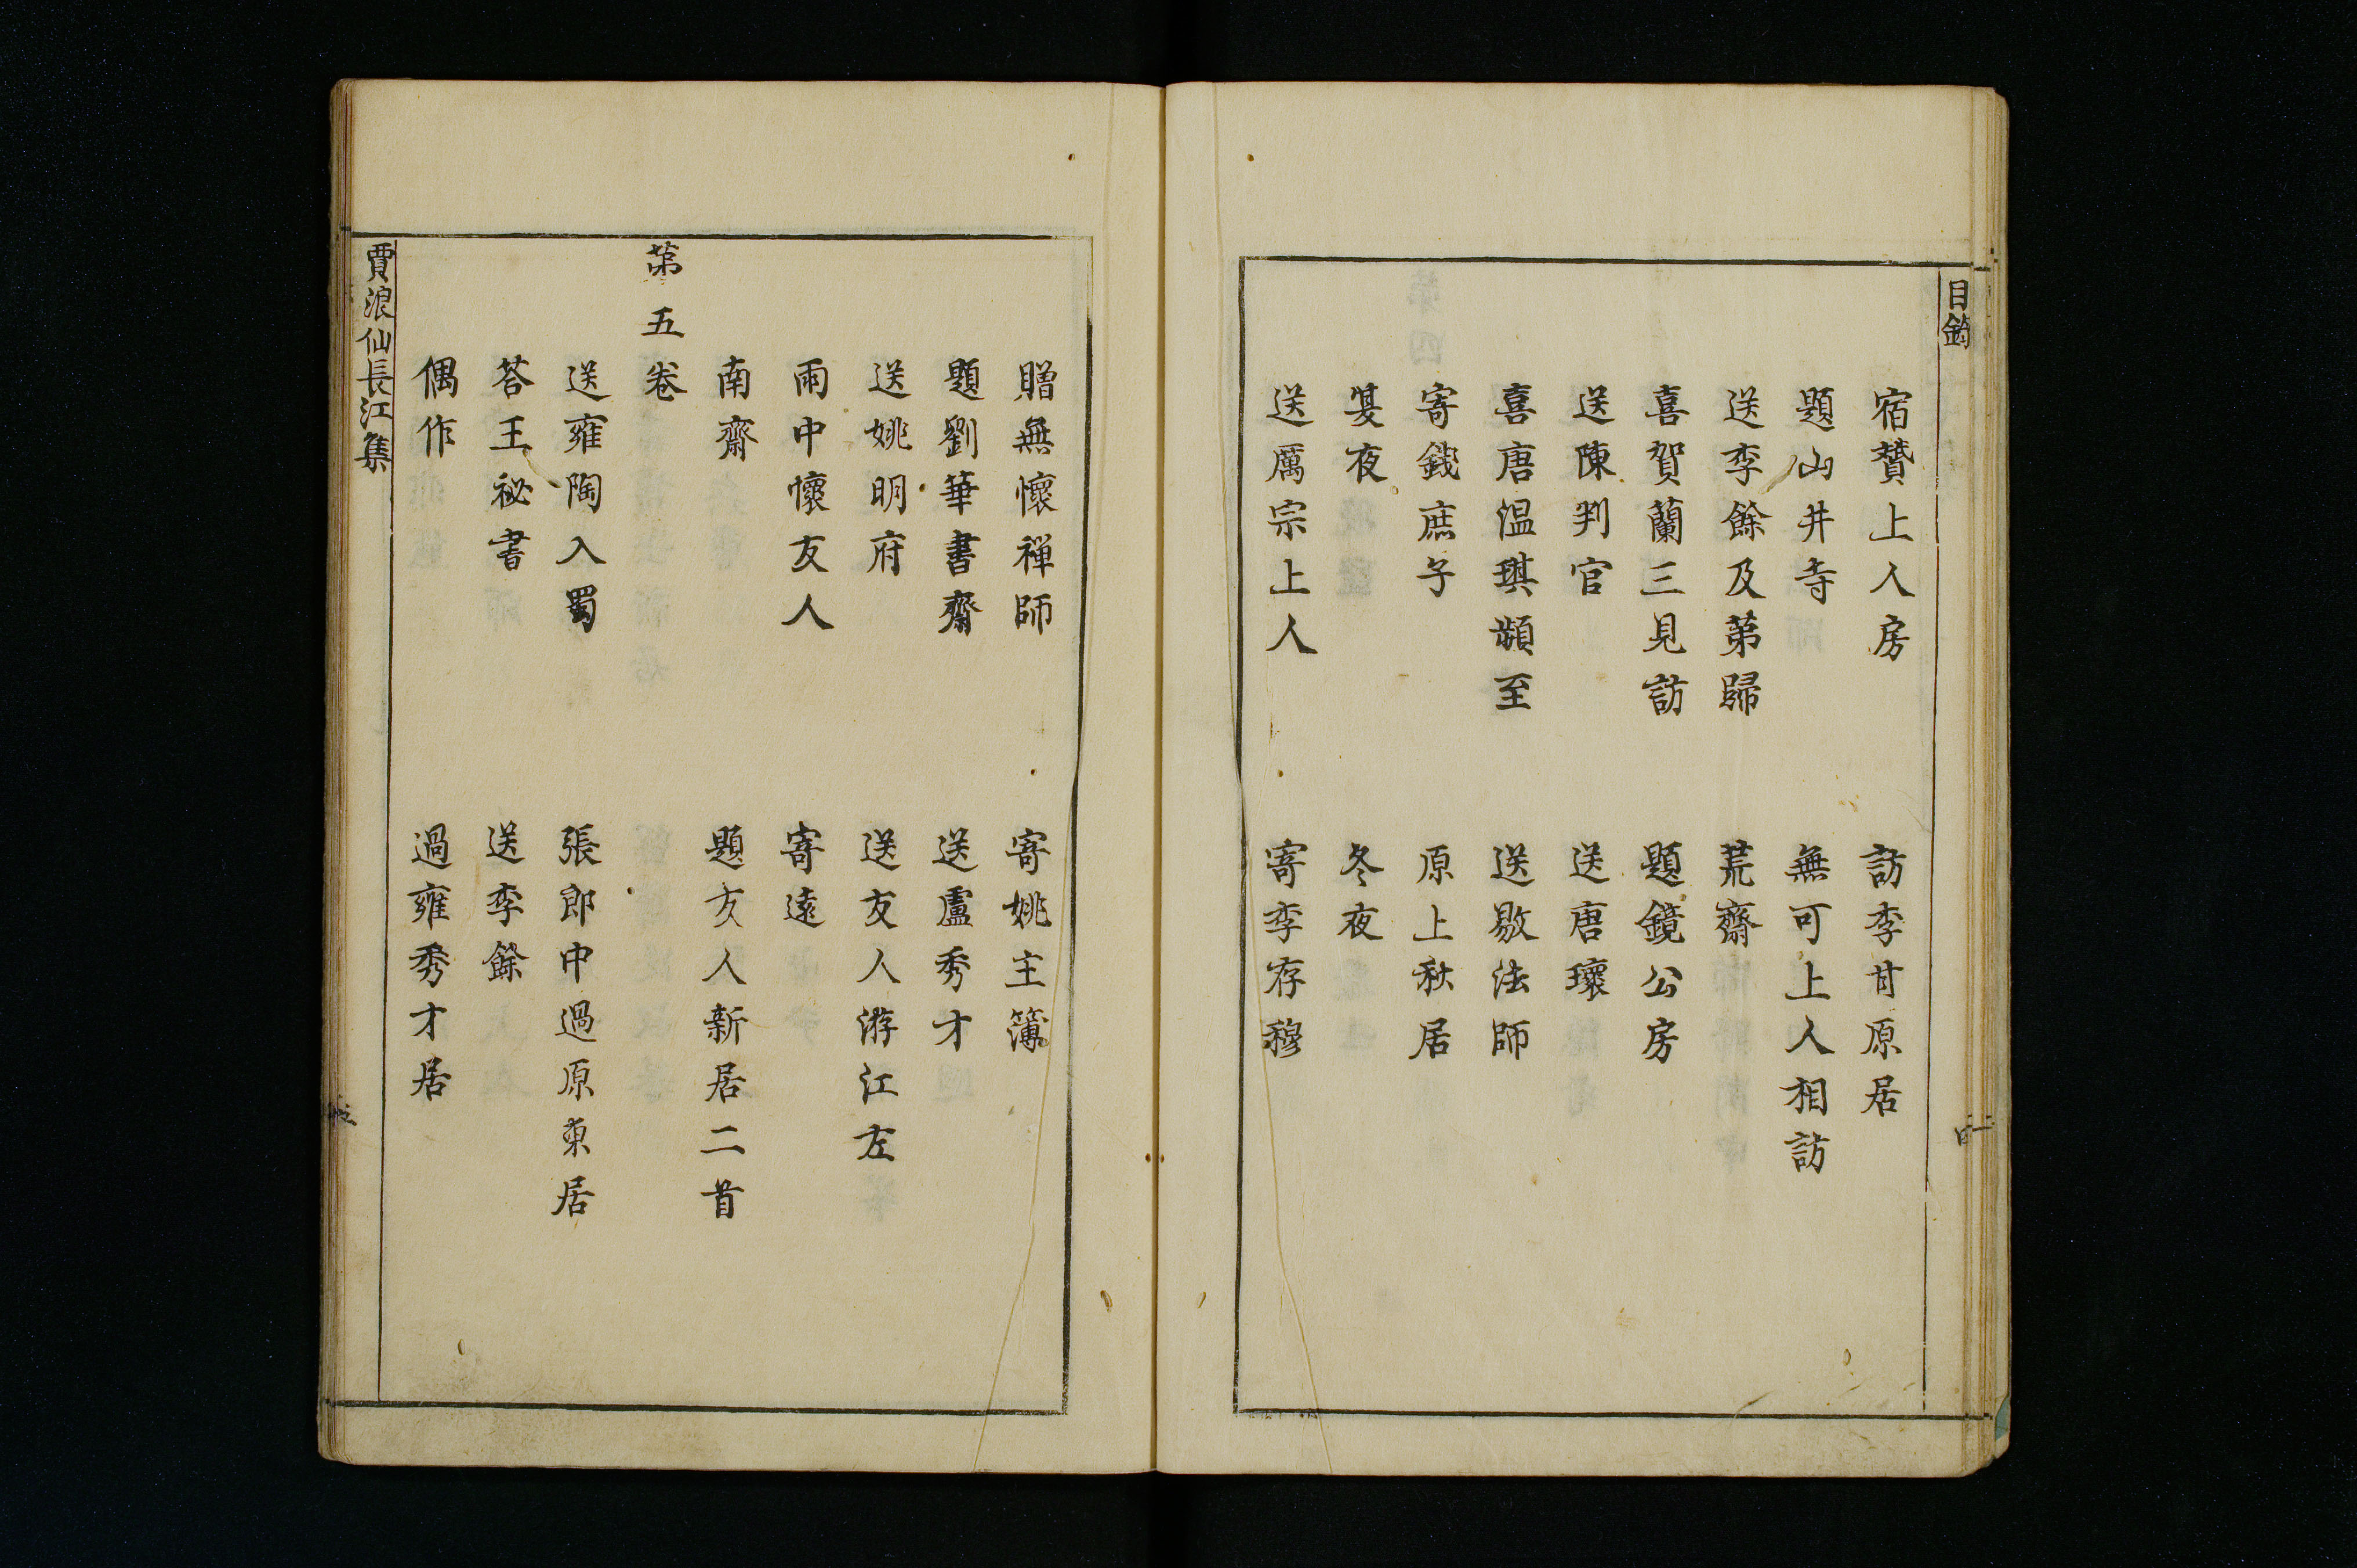 目錄
宿賛上人房　訪李甘原居
題山井寺　無可上人相訪
送李餘及第歸　荒齋
喜賀蘭三見訪　題鏡公房
送陳判官　送唐瓌
喜唐温琪頻至　送敫法師
寄錢庶子　原上秋居
夏夜　冬夜
送厲宗上人　寄李存穆
贈無懷禪師　寄姚主簿
題劉華書齋　送盧秀才
送姚明府　送友人游江左
雨中懷友人　寄遠
南齋　題友人新居二首
第五卷
送雍陶入蜀　張郎中過原東居
荅王祕書　送李餘
偶作　過雍秀才居
賈浪仙長江集